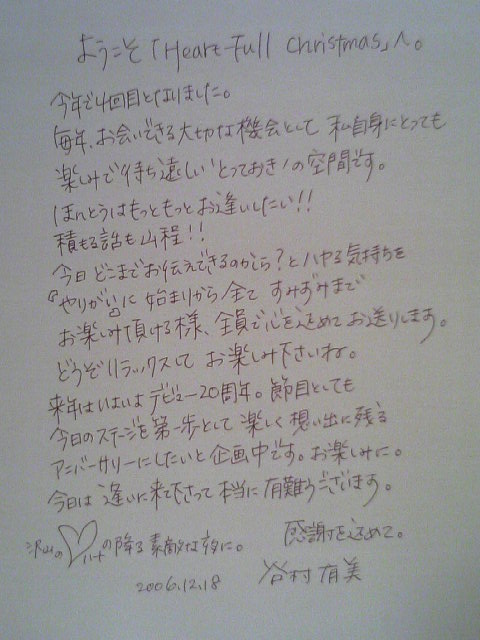 ようこそ「Heart-Full Christmas」へ。
今年で4回目となりました。
毎年、お会いできる大切な機会として 私自身にとっても
楽しみで待ち遠しい"とっておき"の空間です。
ほんとうはもっともっとお逢いしたい!!
積もる話も山程!!
今日どこまでお伝えできるのかしら?とハヤる気持ちを
『やりがい』に 始まりから全て すみずみまで
お楽しみ頂ける様、全員で心を込めて お送りします。
どうぞリラックスして お楽しみ下さいね。
来年はいよいよデビュー20周年。節目としても
今日のステージを第一歩として 楽しく 想い出に残る
アニバーサリーにしたいと企画中です。お楽しみに。
今日は 逢いに来て下さって 本当に 有難うございます。
沢山の♡ハートの降る素敵な夜に。 感謝を込めて。
2006.12.18 谷村有美